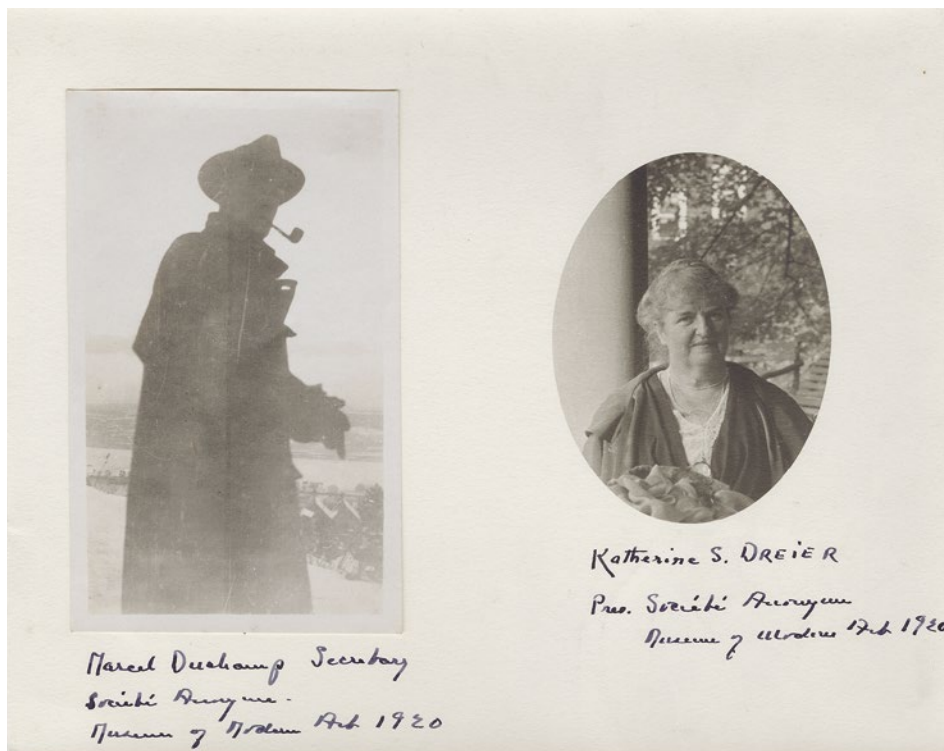 Marcel Duchamp Secretary
Société Anonyme.
Museum of Modern Art 1920
Katherine S. DREiER
Pres. Société Anonyme
Museum of Modern Art 1920